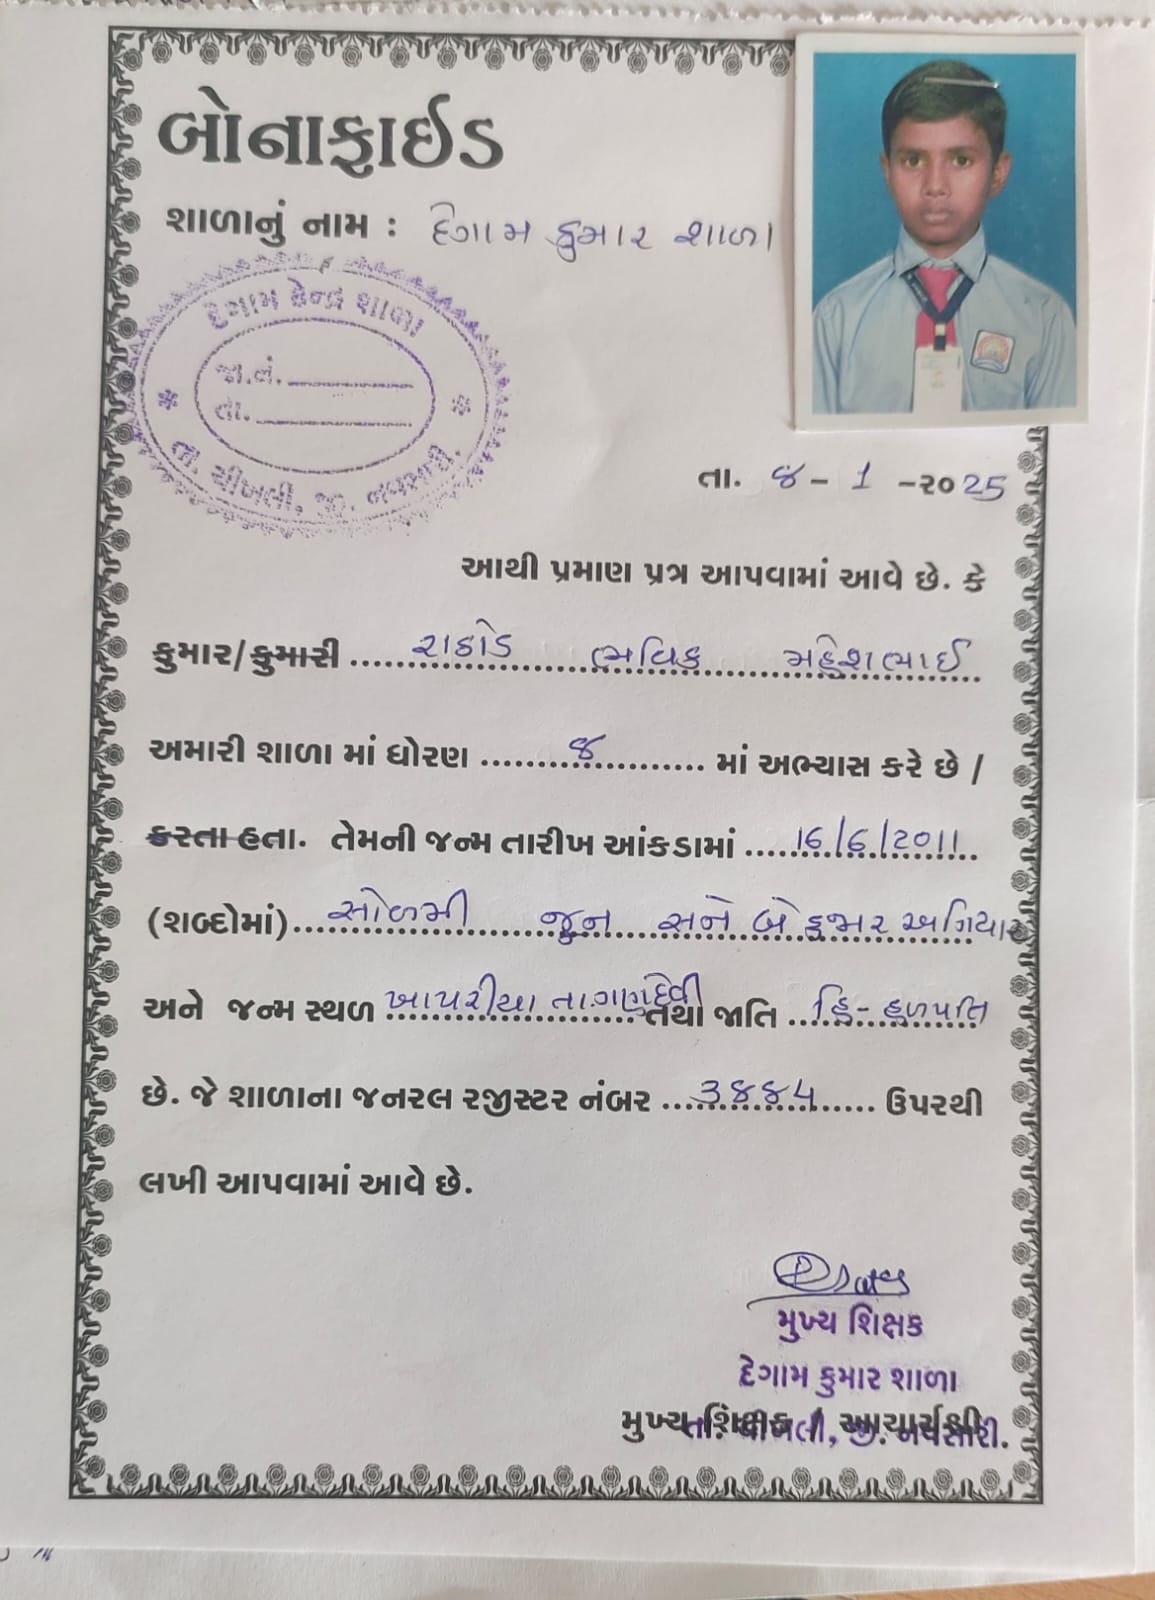 બોનાફાઈડ
શાળાનું નામ : દેગામ કુમાર શાળા
દેગામ કેન્દ્ર શાળા
જા.નં.
તા.
તા. ચીખલી, જી. નવસારી.
તા. ૪ - 1 - ૨૦25
આથી પ્રમાણ પત્ર આપવામાં આવે છે. કે
કુમાર/કુમારી રાઠોડ ભવિક મહેશભાઈ
અમારી શાળા માં ધોરણ ૪ માં અભ્યાસ કરે છે /
કરતા હતા. તેમની જન્મ તારીખ આંકડામાં 16/6/2011
(શબ્દોમાં) સોળમી જૂન સને બે હજાર અગિયાર
અને જન્મ સ્થળ ખાપરીયા તા.ગણદેવી તથા જાતિ હિ-હળપતિ
છે. જે શાળાના જનરલ રજીસ્ટર નંબર ૩૪૪૫ ઉપરથી
લખી આપવામાં આવે છે.
મુખ્ય શિક્ષક
દેગામ કુમાર શાળા
તા. ચીખલી, જી. નવસારી.
મુખ્ય શિક્ષક / આચાર્યશ્રી